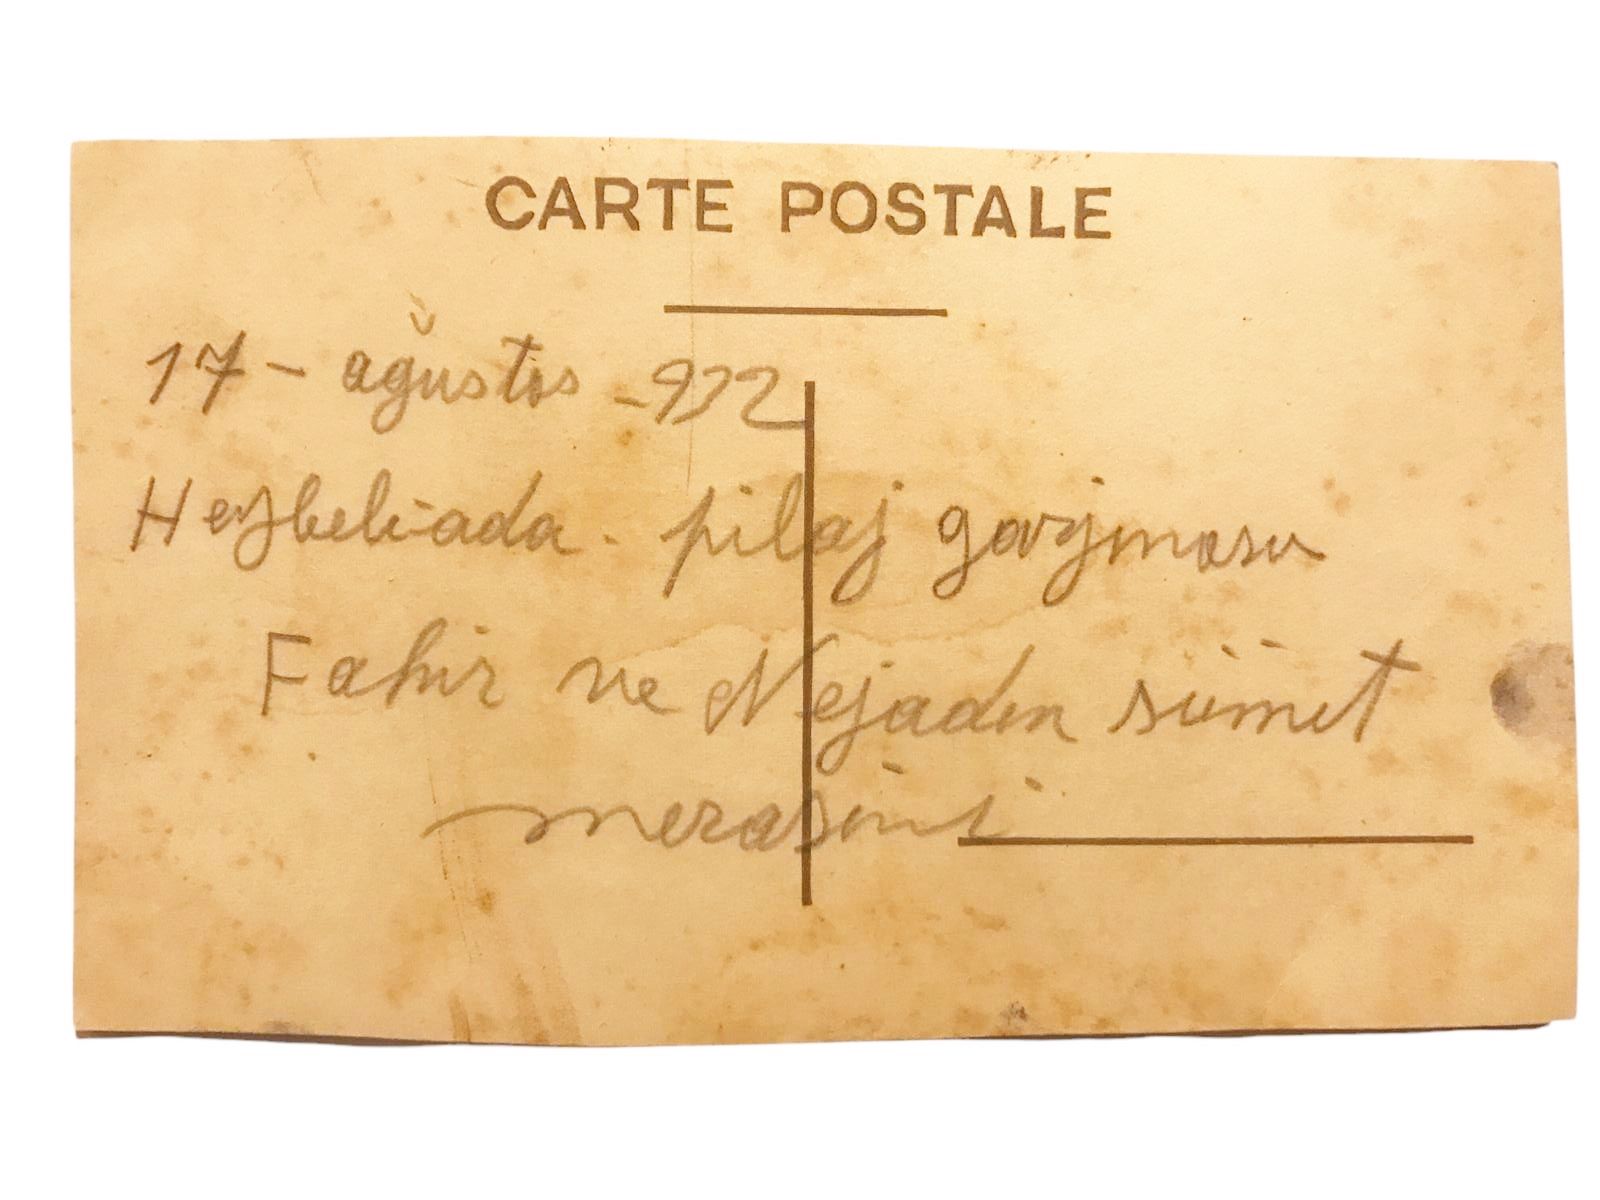 CARTE POSTALE
17 - ağustos - 932
Heybeliada - pilaj
Fahir ve Nejadın sünnet
merasimi